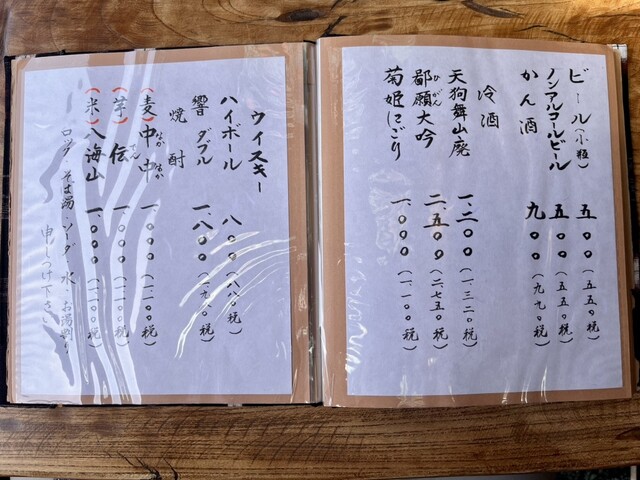 ビール(小瓶) 五〇〇(五五〇税)
ノンアルコールビール 五〇〇(五五〇税)
かん酒 九〇〇(九九〇税)
冷酒
天狗舞山廃 一、二〇〇(一、三二〇税)
鄙願大吟 二、五〇〇(二、七五〇税)
ひがん
菊姫にごり 一、〇〇〇(一、一〇〇税)
ウイスキー
ハイボール 八〇〇(八八〇税)
響ダブル 一、八〇〇(一、九八〇税)
焼酎
(麦)中中 一、〇〇〇(一、一〇〇税)
なかなか
(芋)伝 一、〇〇〇(一、一〇〇税)
でん
(米)八海山 一、〇〇〇(一、一〇〇税)
ロック そば湯・ソーダ 水 お湯割り
申しつけ下さい